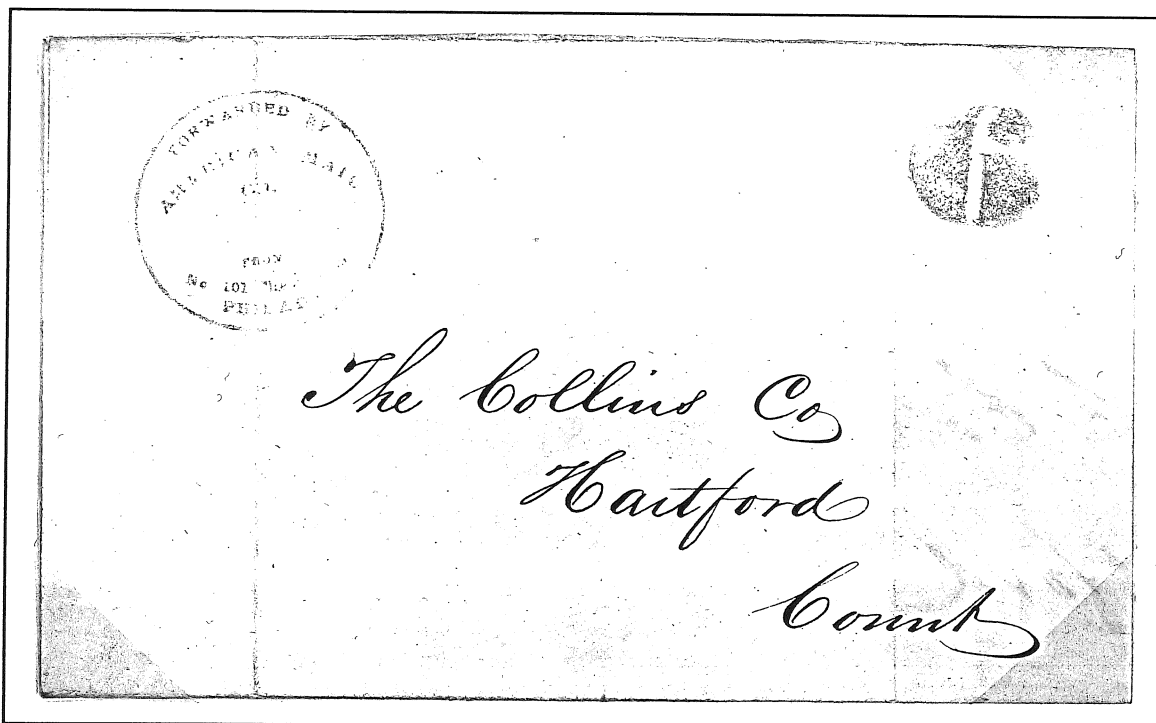 FORWARDED BY
AMERICAN MAIL
CO.
FROM
No 101
PHILAD
6
The Collins Co
Hartford
Connt